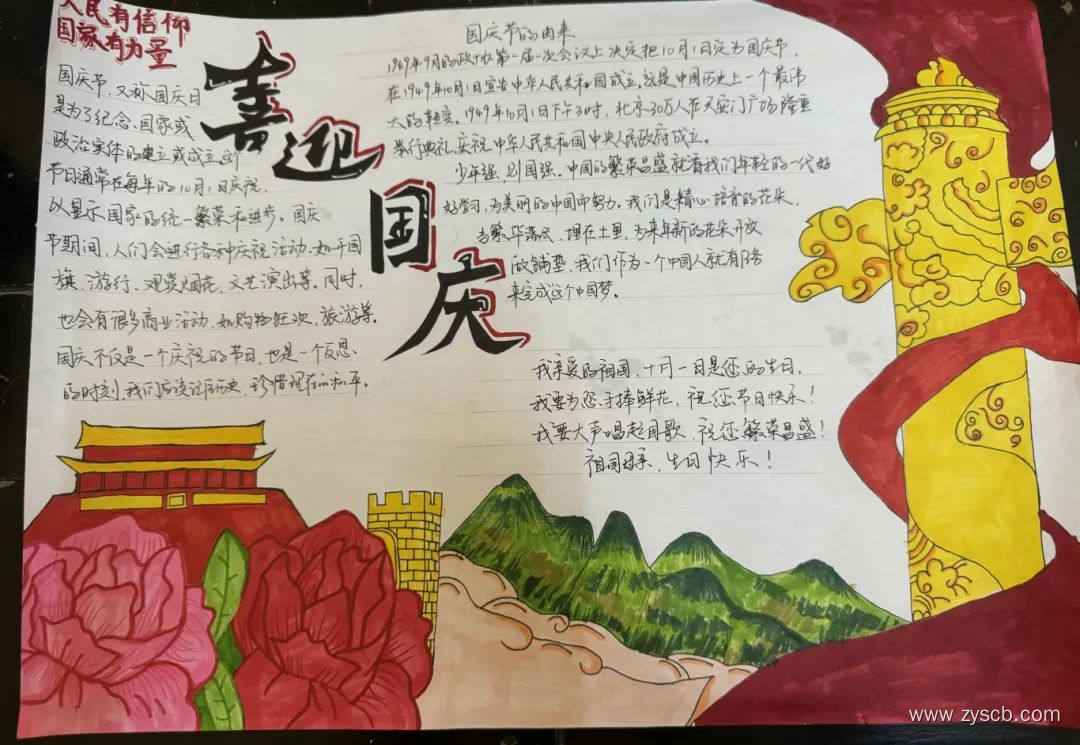 人民有信仰
国家有力量
喜迎国庆
国庆节,又称国庆日
是为了纪念、国家或
政治实体的建立或成立,这个
节日通常在每年的10月1日庆祝,
以显示国家的统一繁荣和进步。国庆
节期间,人们会进行各种庆祝活动,如升国
旗、游行、观赏烟花、文艺演出等。同时,
也会有很多商业活动,如购物狂欢,旅游等。
国庆不仅是一个庆祝的节日,也是一个反思
的时刻,我们应该记住历史,珍惜现在的和平。
国庆节的由来
1949年9月的政协第一届一次会议上决定把10月1日定为国庆节,
在1949年10月1日宣告中华人民共和国成立。这是中国历史上一个最伟
大的转变。1949年10月1日下午3时,北京30万人在天安门广场隆重
举行典礼,庆祝中华人民共和国中央人民政府成立。
少年强,则国强、中国的繁荣昌盛就看我们年轻的一代好
好学习,为美丽的中国而努力。我们是精心培育的花朵,
当繁华落尽,埋在土里,为来年新的花朵开放
做铺垫,我们作为一个中国人就有
来完成这个中国梦。
我亲爱的祖国,十月一日是您的生日,
我要为您手捧鲜花,祝您节日快乐!
我要大声唱起国歌,祝您繁荣昌盛!
祖国母亲,生日快乐!
www.zyscb.com